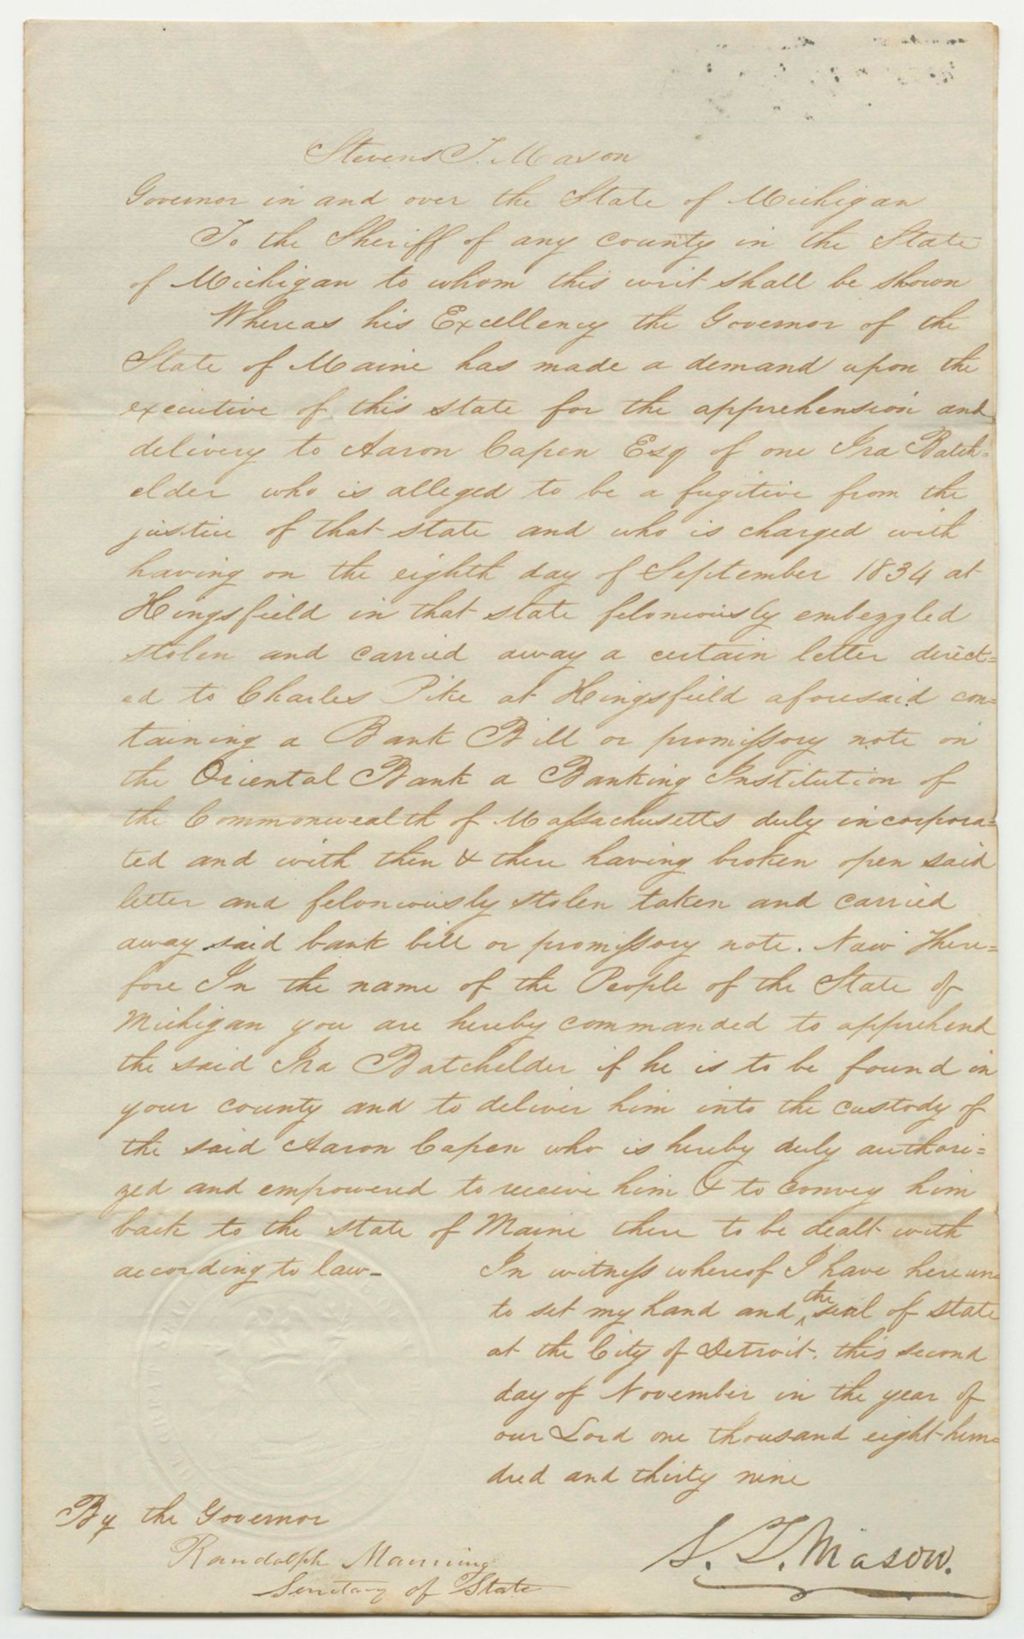 Stevens T. Mason
Governor in and over the State of Michigan
To the Sheriff of any county in the State
of Michigan to whom this writ shall be shown
Whereas his Excellency the Governor of the
State of Maine has made a demand upon the
executive of this state for the apprehension and
delivery to Aaron Capen Esq of one Ira Batch=
elder who is alleged to be a fugitive from the
justice of that state and who is charged with
having on the eighth day of September 1834 at
Kingsfield in that state feloniously embezzled
stolen and carried away a certain letter direct=
ed to Charles Pike at Kingsfield aforesaid con=
taining a Bank Bill or promissory note on
the Oriental Bank a Banking Institution of
the Commonwealth of Massachusetts duly incorpora=
ted and with then & there having broken open said
letter and feloniously stolen taken and carried
away said bank bill or promissory note. Now There=
fore In the name of the People of the State of
Michigan you are hereby commanded to apprehend
the said Ira Batchelder if he is to be found in
your county and to deliver him into the custody of
the said Aaron Capen who is hereby duly authori=
zed and empowered to receive him & to convey him
back to the state of Maine there to be dealt with
according to law-
In witness whereof I have hereun
to set my hand and the seal of state
at the City of Detroit. this second
day of November in the year of
our Lord one thousand eight hun=
dred and thirty nine
By the Governor
Randolph Manning
Secretary of State
S. T. Mason.